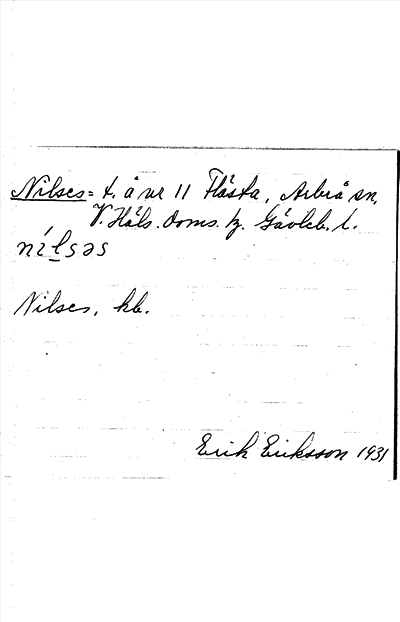 Nilses = t. å nr 11 Flästa, Arbrå sn,
V. Häls. doms. tz. Gävleb. l.
nílsəs
Nilses, kb.
Erik Eriksson 1931